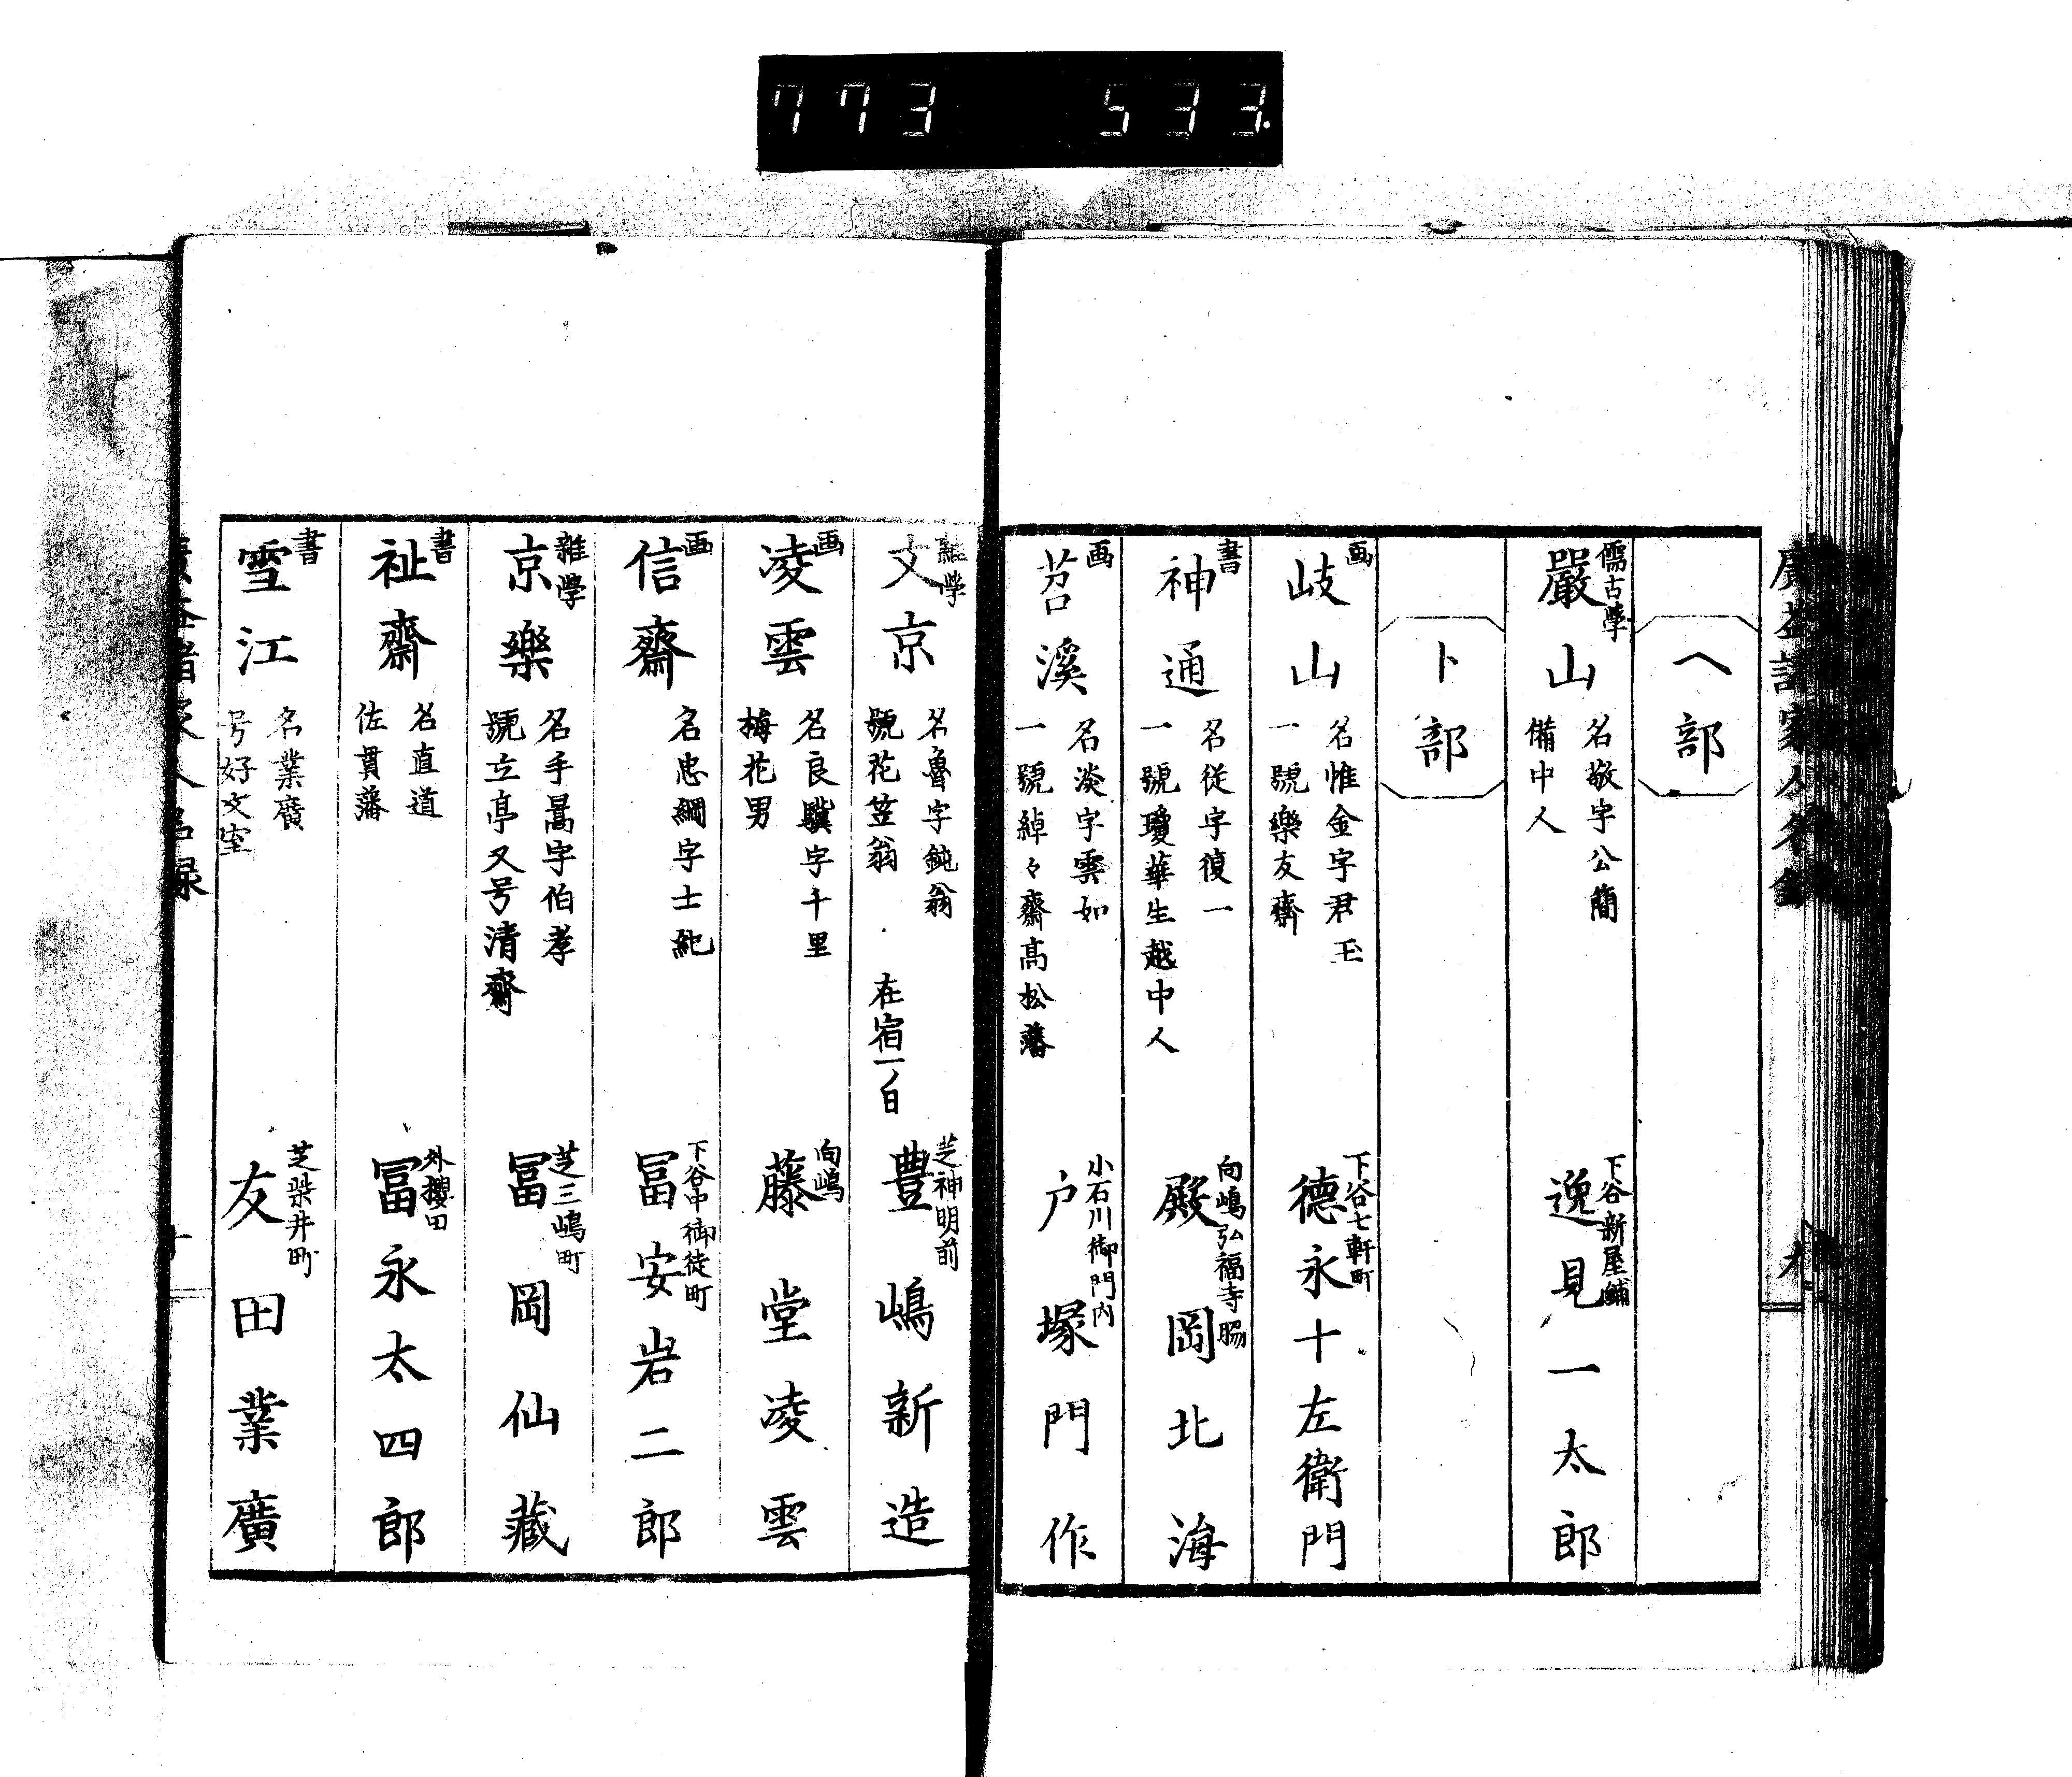 773 533.
廣益諸家人名録
ヘ部
儒古學
嚴山
名敬字公簡
備中人
下谷新屋鋪
逸見一太郎
ト部
画
岐山
名惟金字君玉
一號樂友齋
下谷七軒町
德永十左衛門
書
神通
名從字復一
一號瓊華生越中人
向嶋弘福寺脇
殿岡北海
画
苕溪
名淡字雲如
一號綽々齋髙松藩
小石川御門内
戸塚門作
雜學
文京
名魯字鈍翁
號花笠翁
在宿一ノ日
芝神明前
豊嶋新造
画
凌雲
名良驥字千里
梅花男
向嶋
藤堂凌雲
画
信齋
名忠綱字士紀
下谷中御徒町
冨安岩二郎
雜學
京樂
名手暠字伯孝
號立亭又号清齋
芝三嶋町
冨岡仙藏
書
祉齋
名直道
佐貫藩
外櫻田
冨永太四郎
書
雪江
名業廣
号好文室
芝柴井町
友田業廣
廣益諸家人名録